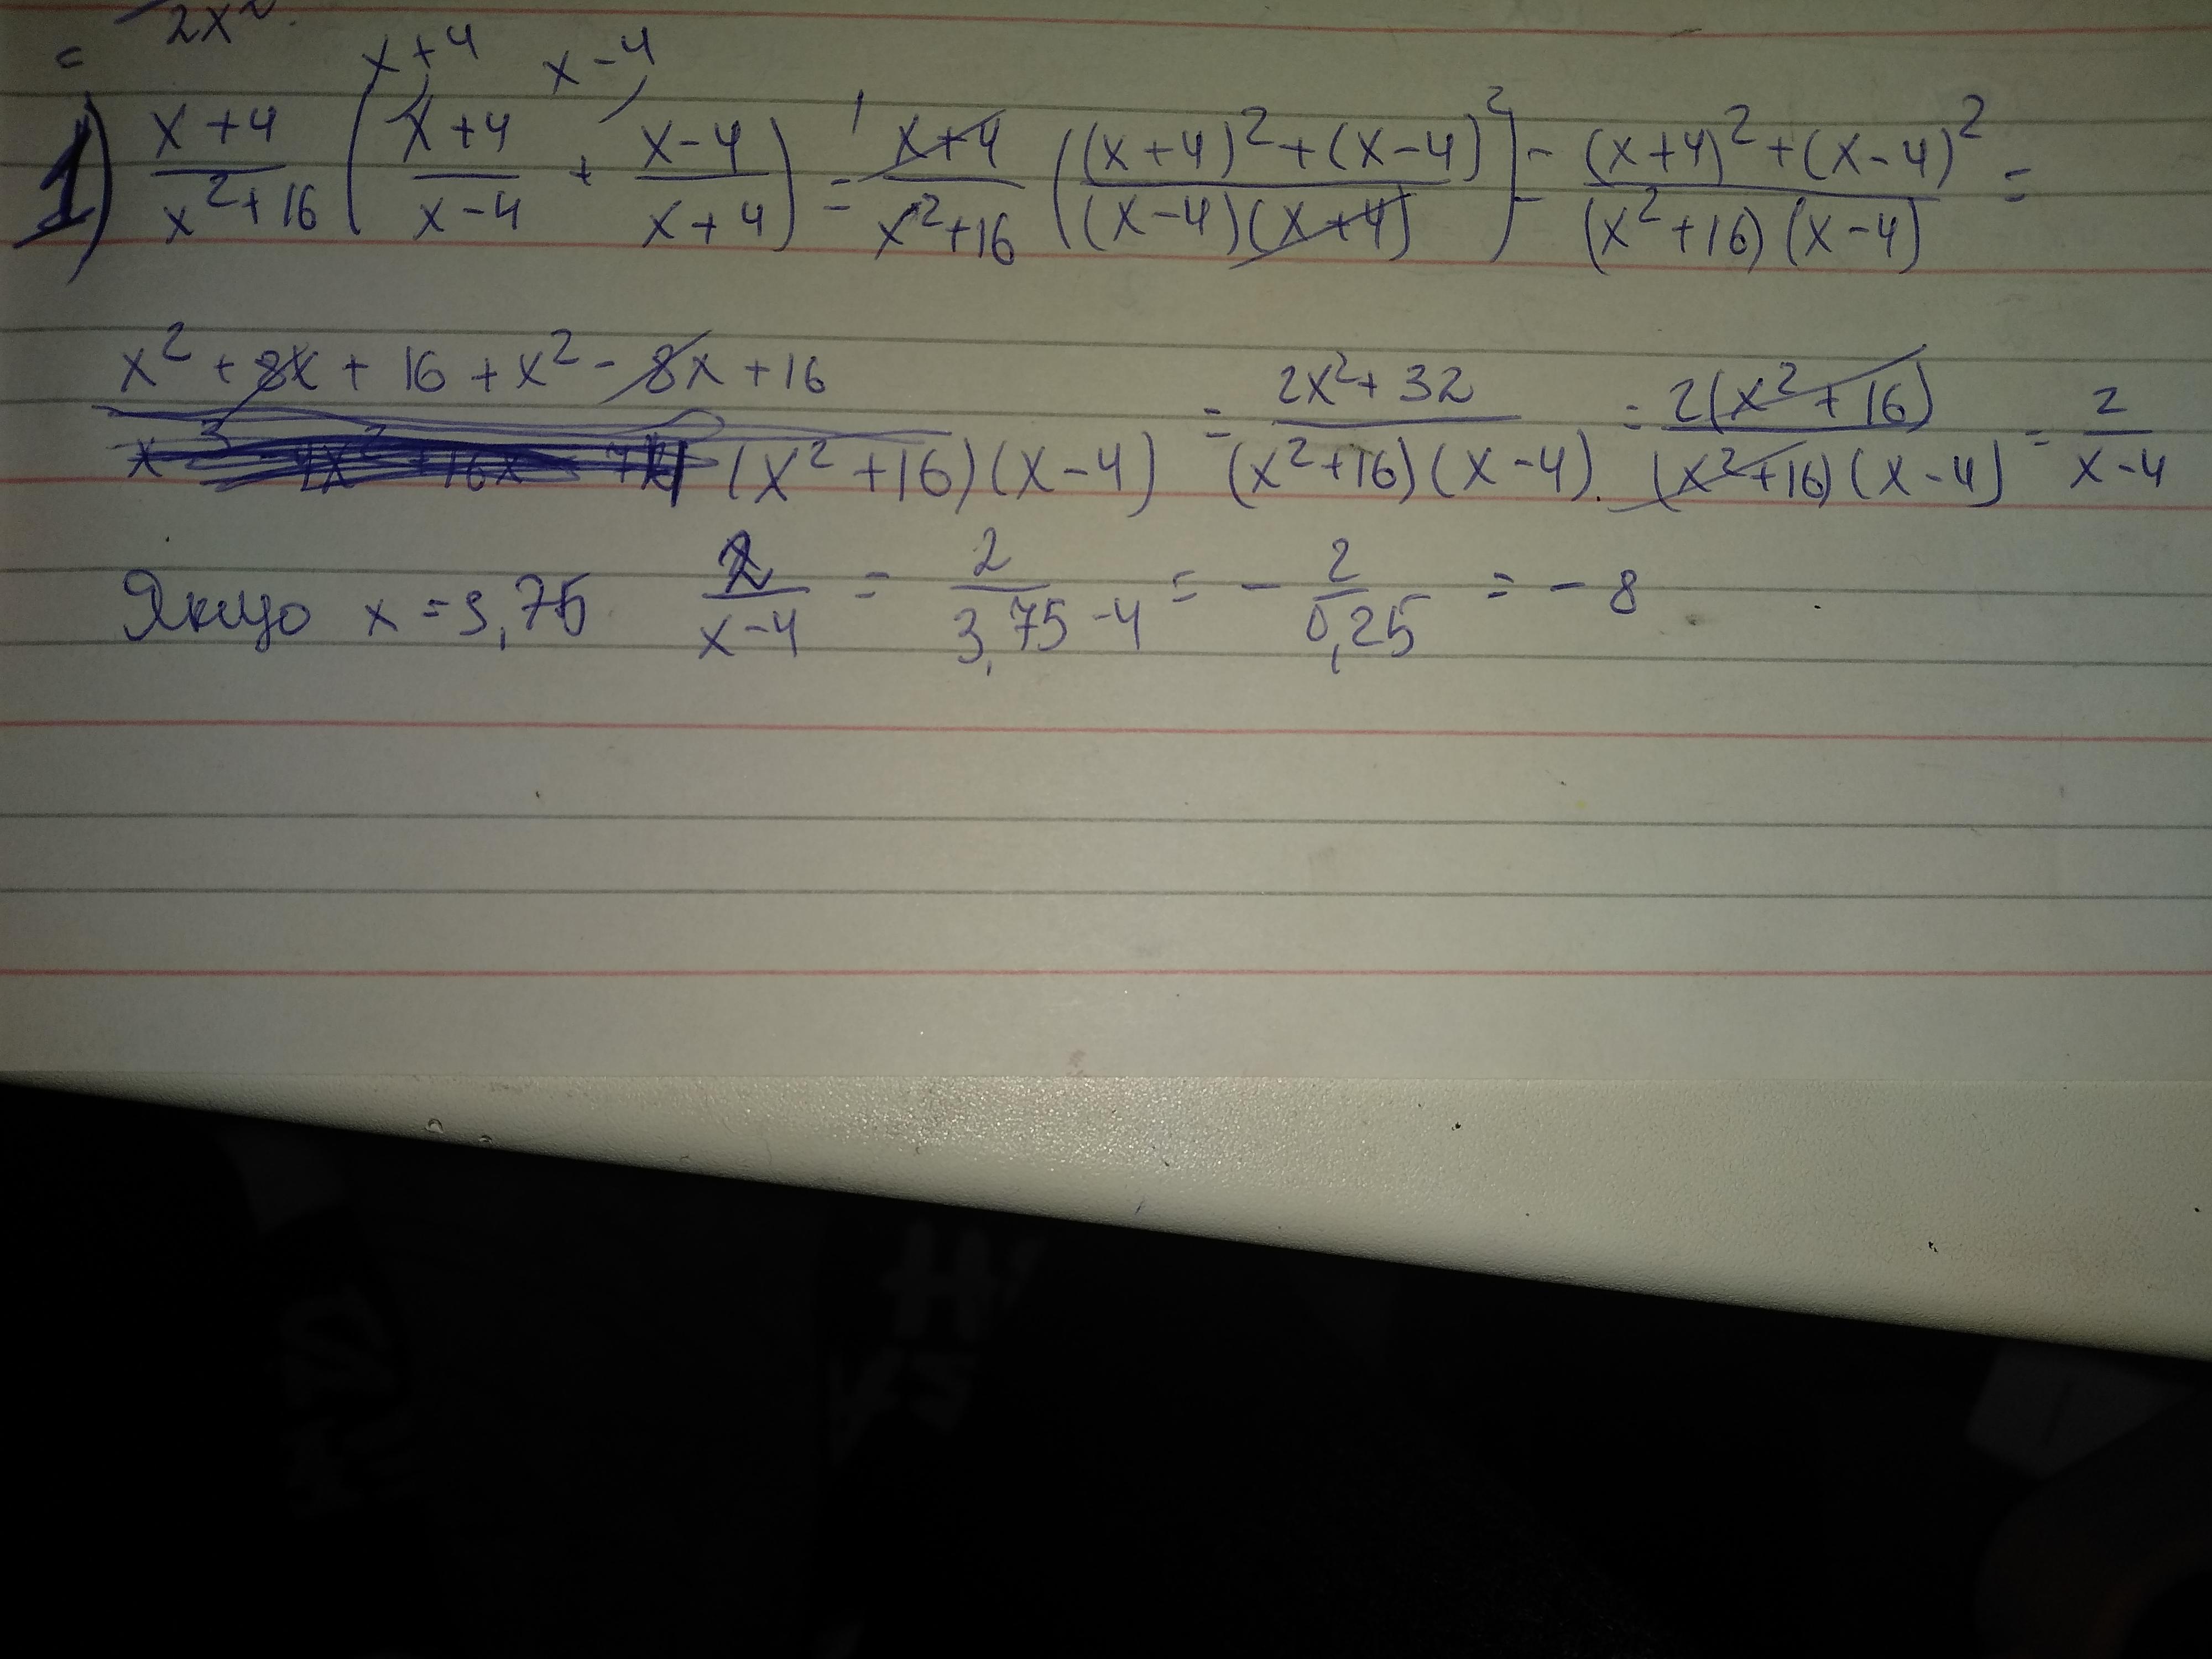 = 2x²
x+4 x-4
1) (x+4)/(x²+16) ((x+4)/(x-4) + (x-4)/(x+4)) = (x+4)/(x²+16) (((x+4)²+(x-4)²)/((x-4)(x+4))) = ((x+4)²+(x-4)²)/((x²+16)(x-4)) =
(x²+8x+16+x²-8x+16)/((x²+16)(x-4)) = (2x²+32)/((x²+16)(x-4)) = (2(x²+16))/((x²+16)(x-4)) = 2/(x-4)
Якщо x=3,75 2/(x-4) = 2/(3,75-4) = - 2/0,25 = - 8